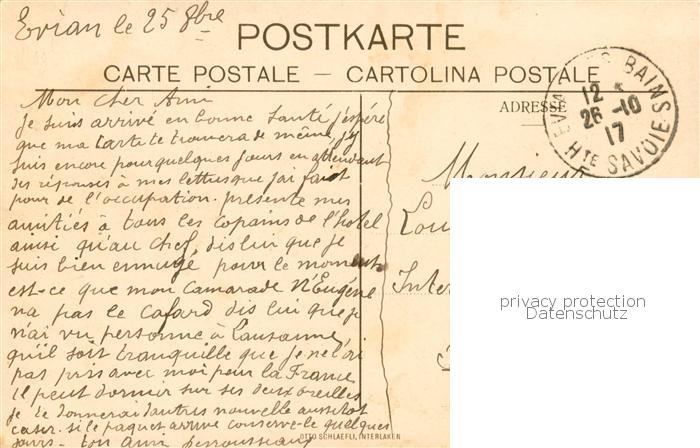 Evian le 25 8bre
POSTKARTE
CARTE POSTALE — CARTOLINA POSTALE
ADRESSE
EVIAN LES BAINS
12
26 -10
17
HTE SAVOIE
Mon cher Ami
Je suis arrivé en bonne Santé j'espére
que ma Carte te trouvera de même, j'y
suis encore pour quelques jours en attendant
des réponses à mes lettres que j'ai fait
pour de l'occupation. présente mes
amitiés à tous les Copains de l'hotel
ainsi qu'au Chef, dis lui que je
suis bien ennuyé pour le moment
est-ce que mon Camarade Eugéne
n'a pas le Cafard dis lui que je
n'ai vu personne à Lausanne
qu'il soit tranquille que je ne l'ai
pas pris avec moi pour la France
il peut dormir sur ses deux oreilles
je te donnerai d'autres nouvelle aussitot
caser. si le paquet arrive conserve-le quelques
jours - ton ami
Monsieur
Lou
Inter
privacy protection
Datenschutz
OTTO SCHLAEFLI, INTERLAKEN